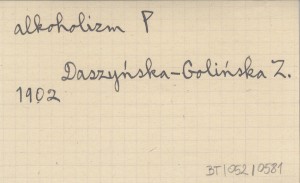 alkoholizm P
Daszyńska-Golińska Z.
1902
BT/052/0581